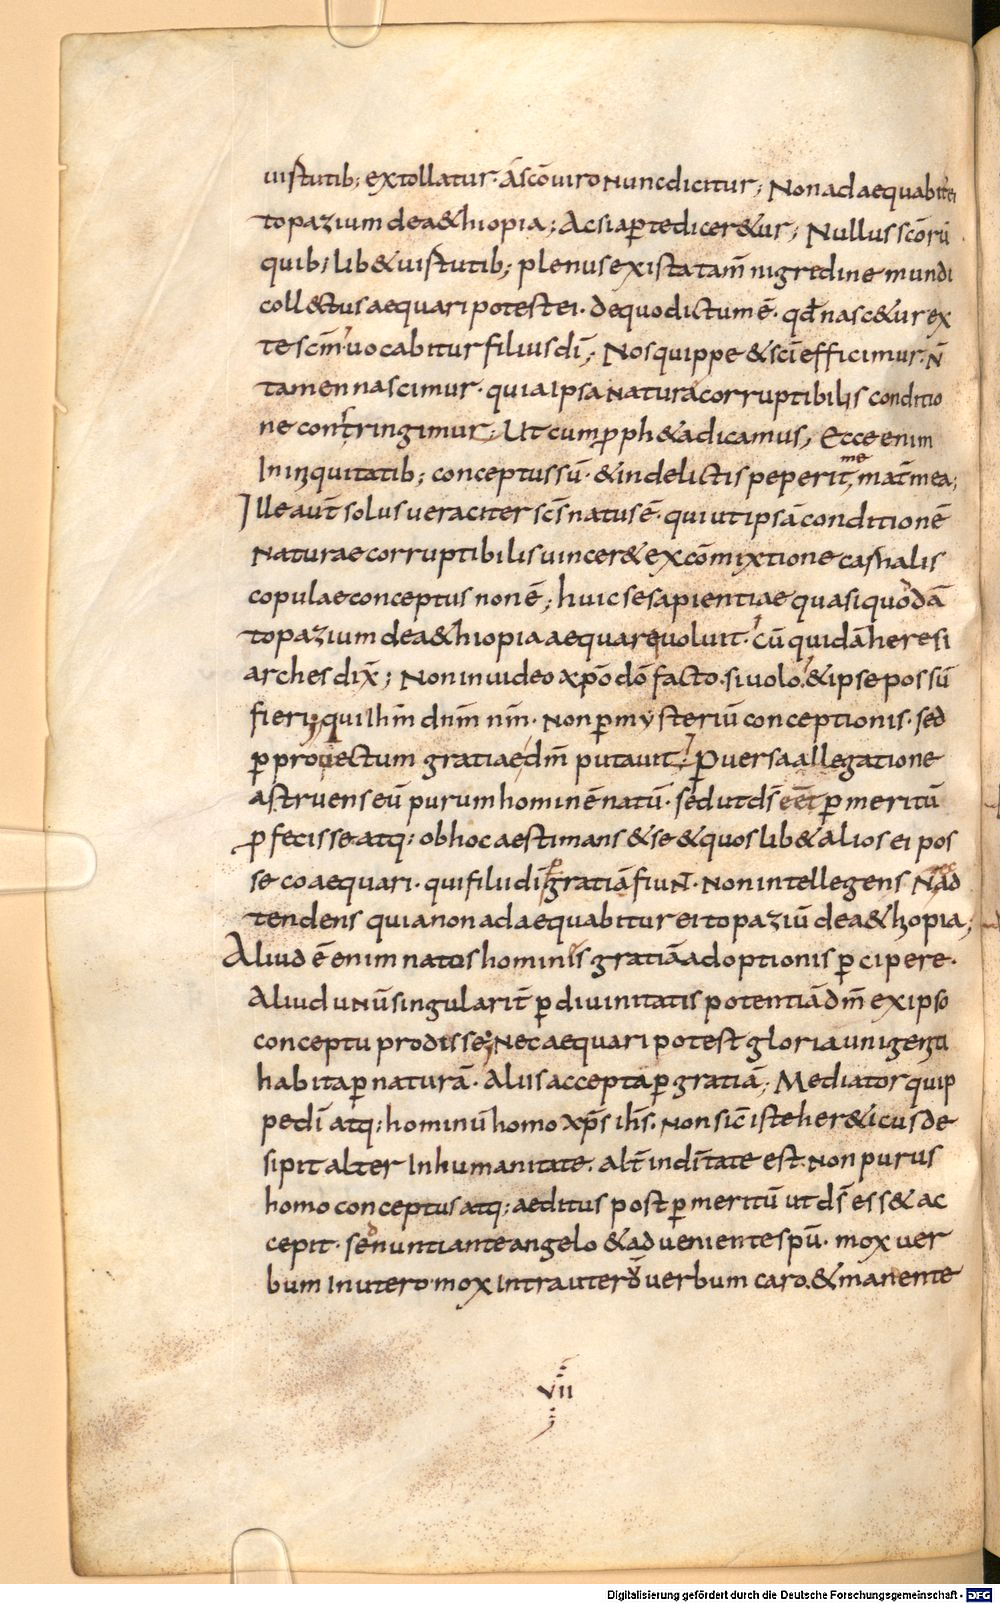 uirtutib; extollatur. A scō uiro nunc dicitur; Non adaequabitur ei
topazium de a&hiopia; Ac si aperte dicer&ur; Nullus scōrū
quib;lib& uirtutib; plenus existat am̄ nigredine mundi
coll&ctus aequari potest ei. de quo dictum ē. qđ nasc&ur ex
te scm̄ uocabitur filius dī; Nos quippe & scī efficimur. n̄
tamen nascimur. quia ipsa natura corruptibilis conditio
ne constringimur; Ut cum proph&a dicamus; Ecce enim
In iniquitatib; conceptus sū. & in delictis peperit me mat̄ mea;
Ille aut̄ solus ueraciter scs̄ natus ē. qui ut ipsā conditionē
naturae corruptibilis uincer& ex cōmixtione carnalis
copulae conceptus non ē; huic se sapientiae quasi quodā
topazium de a&hiopia aequare uoluit. Cū quidā heresi
arches dix̄; Non inuideo xp̄o dō facto. si uolo & ipse possū
fieri; qui ihm̄ dnm̄ nm̄. non p mysteriū conceptionis. sed
p prouectum gratiae dm̄ putauit; Puersa allegatione
astruens eū purum hominē natū. sed ut ds̄ eēt p meritū
pfecisse. atq; ob hoc aestimans & se & quoslib& alios ei pos
se coaequari. qui filii dī p gratiā fiunt. Non intellegens nec ad
tendens quia non adaequabitur ei topaziū de a&hopia;
Aliud ē enim natos hominis gratiā adoptionis pcipere.
Aliud unū singularit̄ p diuinitatis potentiā dm̄ ex ipso
conceptu prodisse; Nec aequari potest gloria unigeniti
habita p naturā. Aliis accepta p gratiā; Mediator quip
pe dī atq; hominū homo xp̄s ihs̄. Non sic̄ iste her&icus de
sipit alter In humanitate. Alt̄ in dītate est. Non purus
homo conceptus atq; aeditus post p meritū ut ds̄ ess& ac
cepit. sed nuntiante angelo & adueniente spū. mox uer
bum In utero. mox Intra uterū uerbum caro. & manente
vii
Digitalisierung gefördert durch die Deutsche Forschungsgemeinschaft - DFG